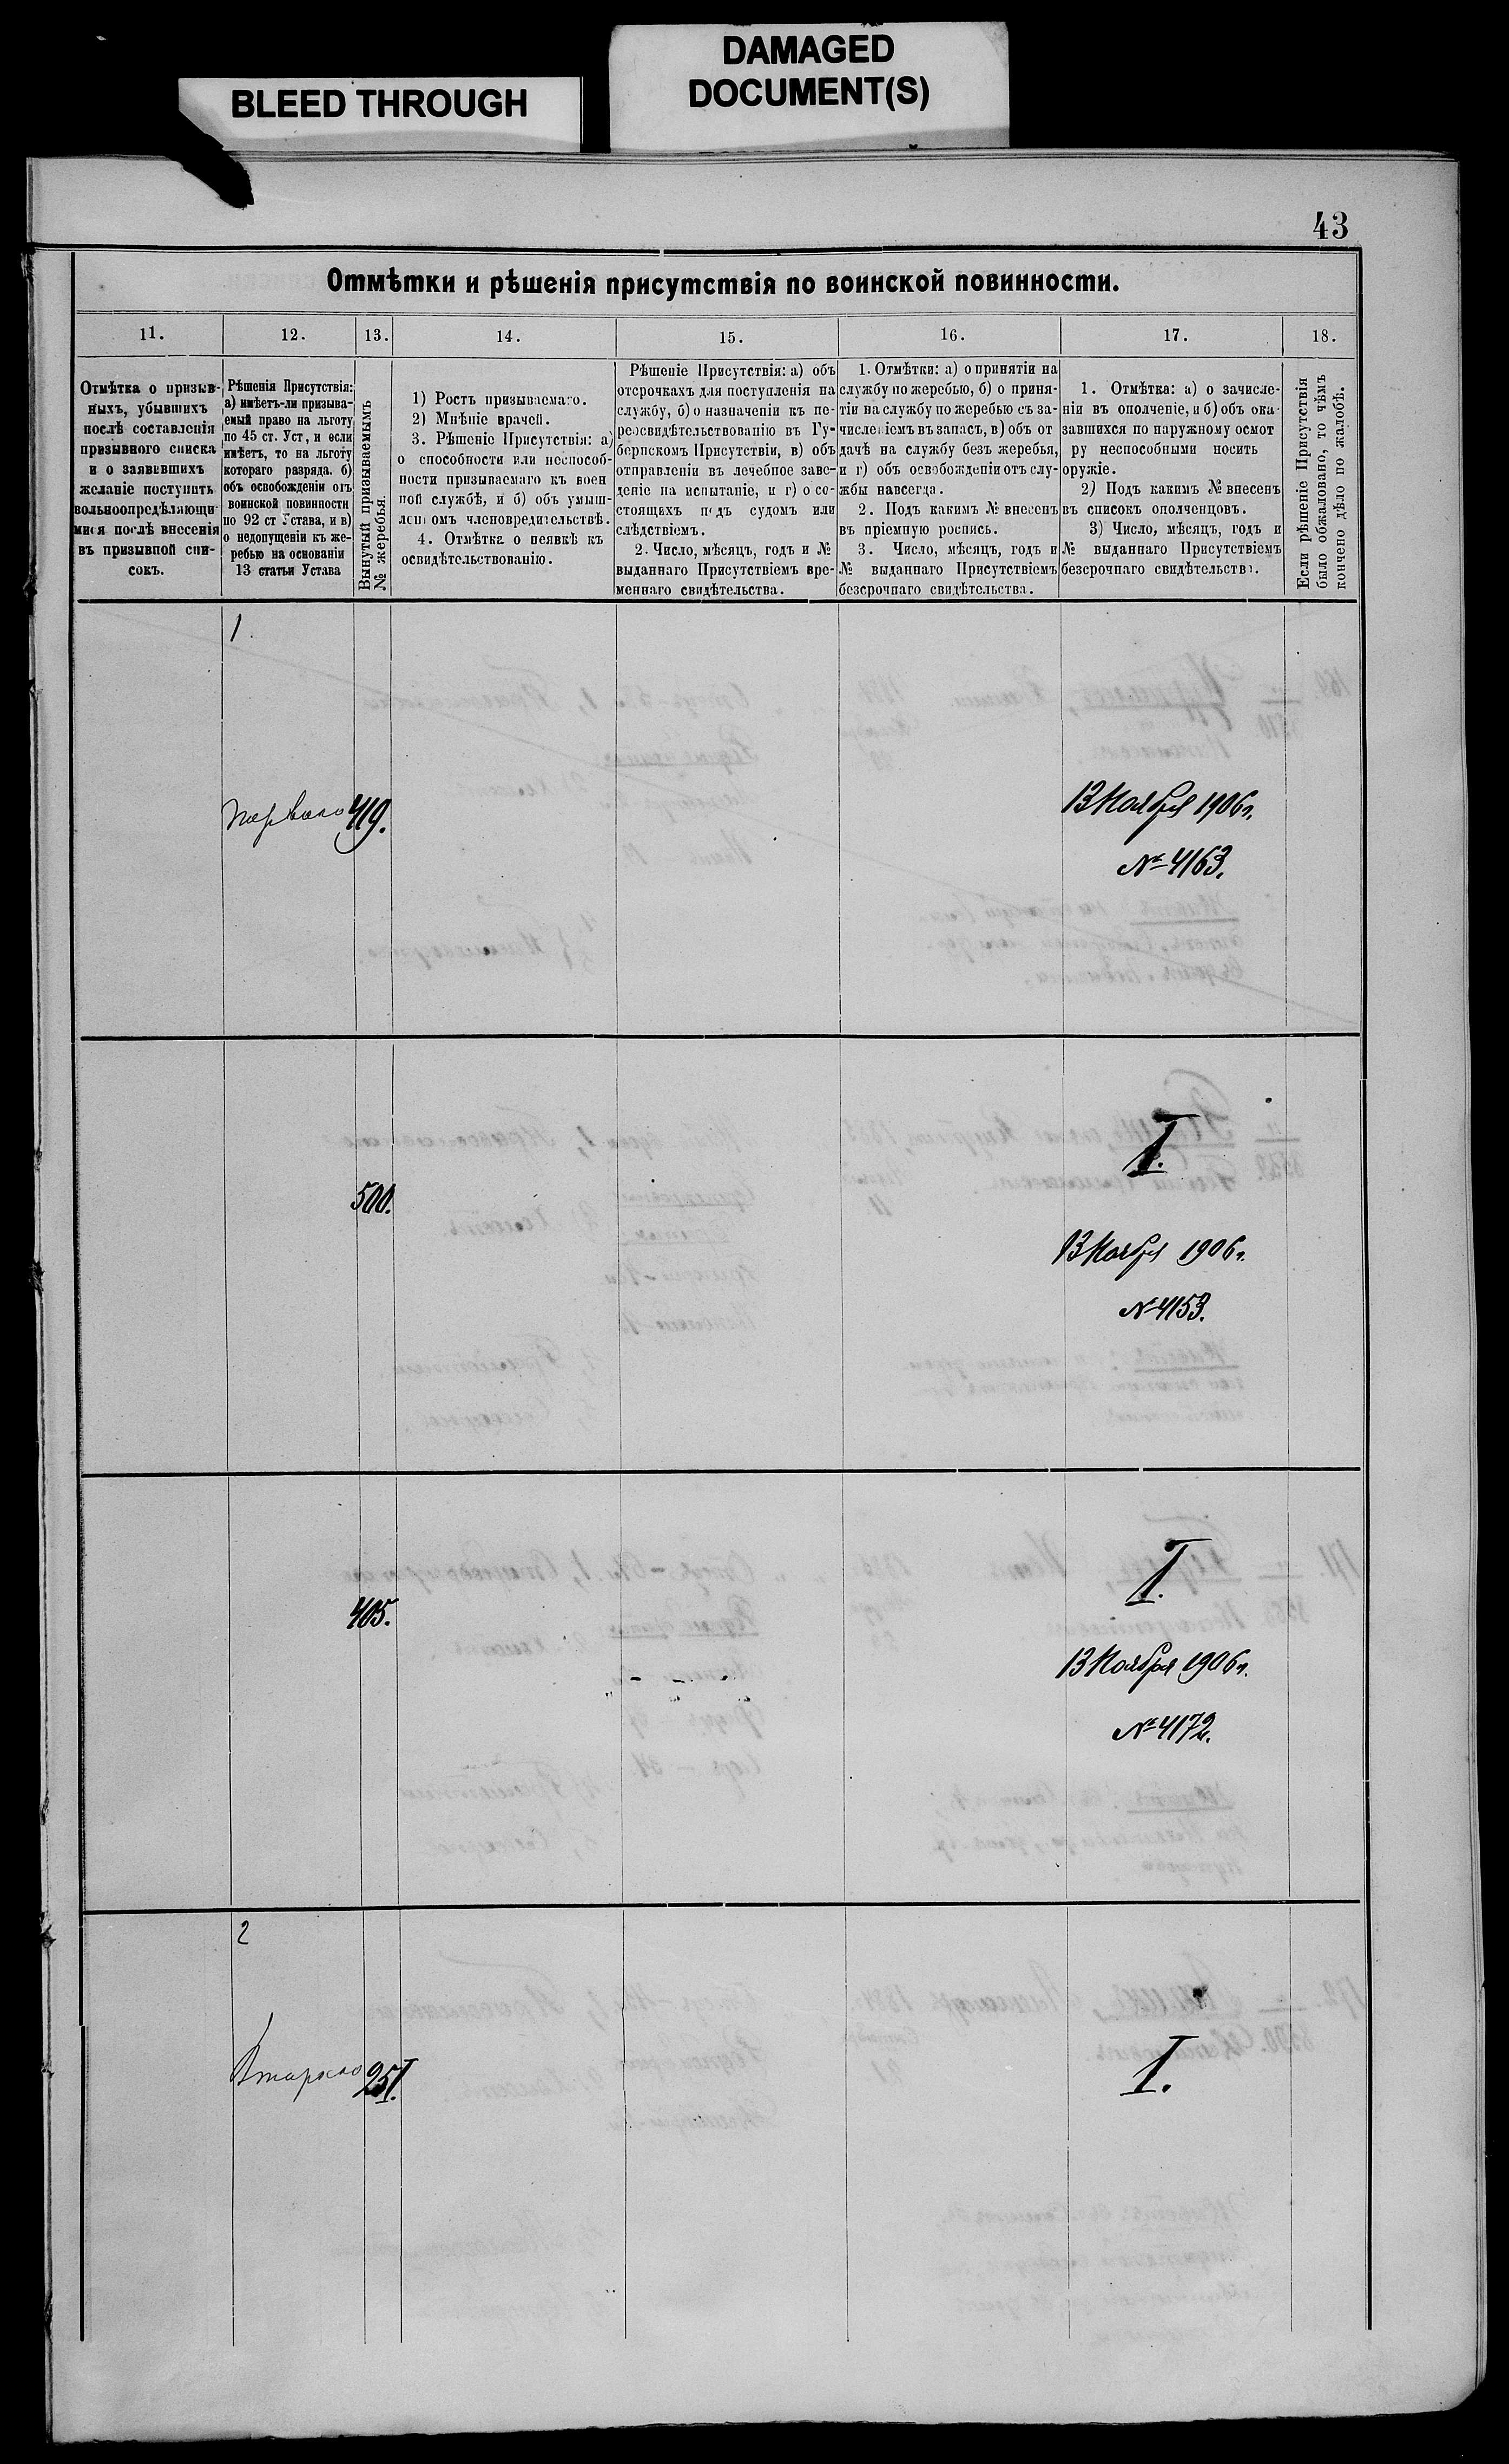 BLEED THROUGH
DAMAGED
DOCUMENT(S)
43
Отмѣтки и рѣшенія присутствія по воинской повинности.
11.
12.
13.
14.
15.
16.
17.
18.
Отмѣтка о призыв-
ныхъ, убывшихъ
послѣ составленія
призывного списка
и о заявившихъ
желаніе поступить
вольноопредѣляющи-
мися послѣ внесенія
въ призывной спи-
сокъ.
Рѣшенія Присутствія:
а) имѣетъ-ли призыва-
емый право на льготу
по 45 ст. Уст, и если
имѣетъ, то на льготу
котораго разряда. б)
объ освобожденіи отъ
воинской повинности
по 92 ст Устава, и в)
о недопущеніи къ же-
ребью на основаніи
13 статьи Устава
Вынутый призываемымъ
№ жеребья.
1) Ростъ призываемаго.
2) Мнѣніе врачей.
3. Рѣшеніе Присутствія: а)
о способности или неспособ-
ности призываемаго къ воен
ной службѣ, и б) объ умыш-
леномъ членовредительствѣ.
4. Отмѣтка о неявкѣ къ
освидѣтельствованію.
Рѣшеніе Присутствія: а) объ
отсрочкахъ для поступленія на
службу, б) о назначеніи къ пе-
реосвидѣтельствованію въ Гу-
бернскомъ Присутствіи, в) объ
отправленіи въ лечебное заве-
деніе на испытаніе, и г) о со-
стоящахъ подъ судомъ или
слѣдствіемъ.
2. Число, мѣсяцъ, годъ и №
выданнаго Присутствіемъ вре-
меннаго свидѣтельства.
1. Отмѣтки: а) о принятіи на
службу по жеребью, б) о приня-
тіи на службу по жеребью съ за-
численіемъ въ запасъ, в) объ от
дачѣ на службу безъ жеребья,
и г) объ освобожденіи отъ слу-
жбы навсегда.
2. Подъ какимъ № внесенъ
въ пріемную роспись.
3. Число, мѣсяцъ, годъ и
№ выданнаго Присутствіемъ
безсрочнаго свидѣтельства.
1. Отмѣтка: а) о зачисле-
ніи въ ополченіе, и б) объ ока-
завшихся по наружному осмот
ру неспособными носить
оружіе.
2) Подъ какимъ № внесенъ
въ списокъ ополченцовъ.
3) Число, мѣсяцъ, годъ и
№ выданнаго Присутствіемъ
безсрочнаго свидѣтельства.
Если рѣшеніе Присутствія
было обжаловано, то чѣмъ
кончено дѣло по жалобѣ.
1.
перваго 419.
13 Ноября 1906 г.
№ 4163.
I.
500.
13 Ноября 1906 г.
№ 4153.
I.
405.
13 Ноября 1906 г.
№ 4172.
2
Втораго 251.
I.